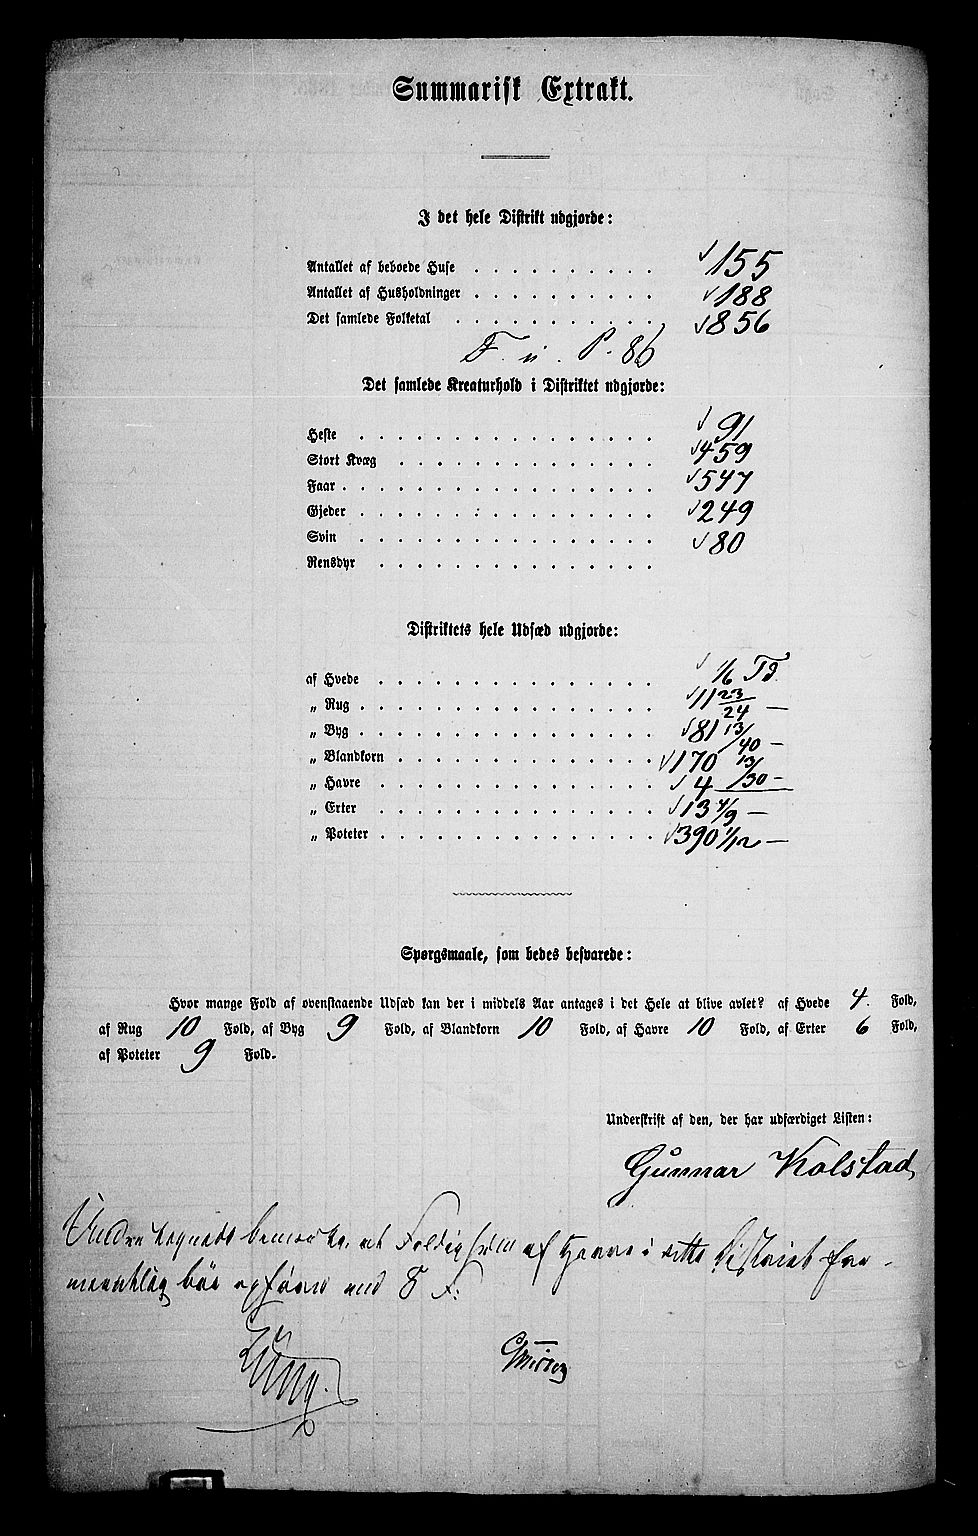 Summarisk Extrakt.
I det hele Distrikt udgjorde:
Antallet af beboede Huse . . . . . . . . . . 155
Antallet af Husholdninger . . . . . . . . . . 188
Det samlede Folketal . . . . . . . . . . . 856
Det samlede Kreaturhold i Distriktet udgjorde:
Heste . . . . . . . . . . . . . . . 91
Stort Kvæg . . . . . . . . . . . . . 459
Faar . . . . . . . . . . . . . . . . 547
Gjeder . . . . . . . . . . . . . . . 249
Svin . . . . . . . . . . . . . . . 80
Rensdyr . . . . . . . . . . . . . .
Distriktets hele Udsæd udgjorde:
af Hvede . . . . . . . . . . . . . . 1/6 Td.
„ Rug . . . . . . . . . . . . . . . 11 23/24 —
„ Byg . . . . . . . . . . . . . . . 81 13/40 —
„ Blandkorn . . . . . . . . . . . . . 170 13/30 —
„ Havre . . . . . . . . . . . . . . 4 —
„ Erter . . . . . . . . . . . . . . 13 4/9 —
„ Poteter . . . . . . . . . . . . . . 390 1/12 —
Spørgsmaale, som bedes besvarede:
Hvor mange Fold af ovenstaaende Udsæd kan der i middels Aar antages i det Hele at blive avlet? af Hvede 4. Fold,
af Rug 10 Fold, af Byg 9 Fold, af Blandkorn 10 Fold, af Havre 10 Fold, af Erter 6 Fold,
af Poteter 9 Fold.
Underskrift af den, der har udfærdiget Listen:
Gunnar Kolstad
Undertegnede bemærke, at Foldigheden af Havre i dette Distrikt
bør opføres med 8 F.